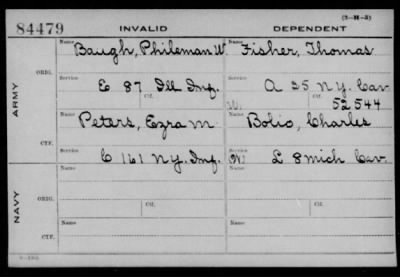 (3-H-3)
84479 INVALID DEPENDENT
Name Name
Baugh, Phileman W. Fisher, Thomas
ARMY
ORIG.
Service Service
E 87 Ill Inf. A 25 N.Y. Cav
Ctf. W. Ctf. 52544
Name Name
Peters, Ezra M Bolio, Charles
CTF.
Service Service
C 161 N.Y. Inf. W. L 8 Mich Cav.
NAVY
Name Name
ORIG.
Ctf. Ctf.
Name Name
CTF.